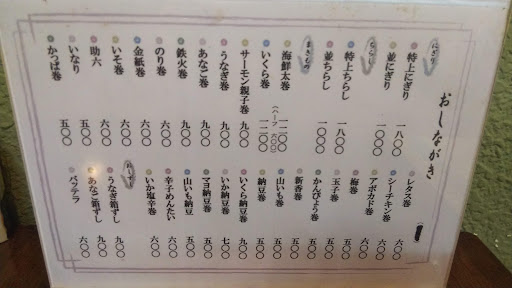 おしながき
にぎり
特上にぎり 一八〇〇
並にぎり 一〇〇〇
ちらし
特上ちらし 一八〇〇
並ちらし 一〇〇〇
まきもの
海鮮太巻 一二〇〇
(ハーフ 六〇〇)
いくら巻 一二〇〇
サーモン親子巻 九〇〇
うなぎ巻 九〇〇
あなご巻 九〇〇
鉄火巻 九〇〇
のり巻 六〇〇
金紙巻 六〇〇
いそ巻 六〇〇
助六 六〇〇
いなり 五〇〇
かっぱ巻 五〇〇
レタス巻 六〇〇
シーチキン巻 六〇〇
アボカド巻 六〇〇
梅巻 五〇〇
玉子巻 五〇〇
かんぴょう巻 五〇〇
新香巻 五〇〇
山いも巻 五〇〇
納豆巻 五〇〇
いくら納豆巻 九〇〇
いか納豆巻 七〇〇
マヨ納豆巻 五〇〇
山いも納豆 五〇〇
辛子めんたい 六〇〇
いか塩辛巻 六〇〇
うなぎ箱ずし 九〇〇
あなご箱ずし 九〇〇
バッテラ 六〇〇